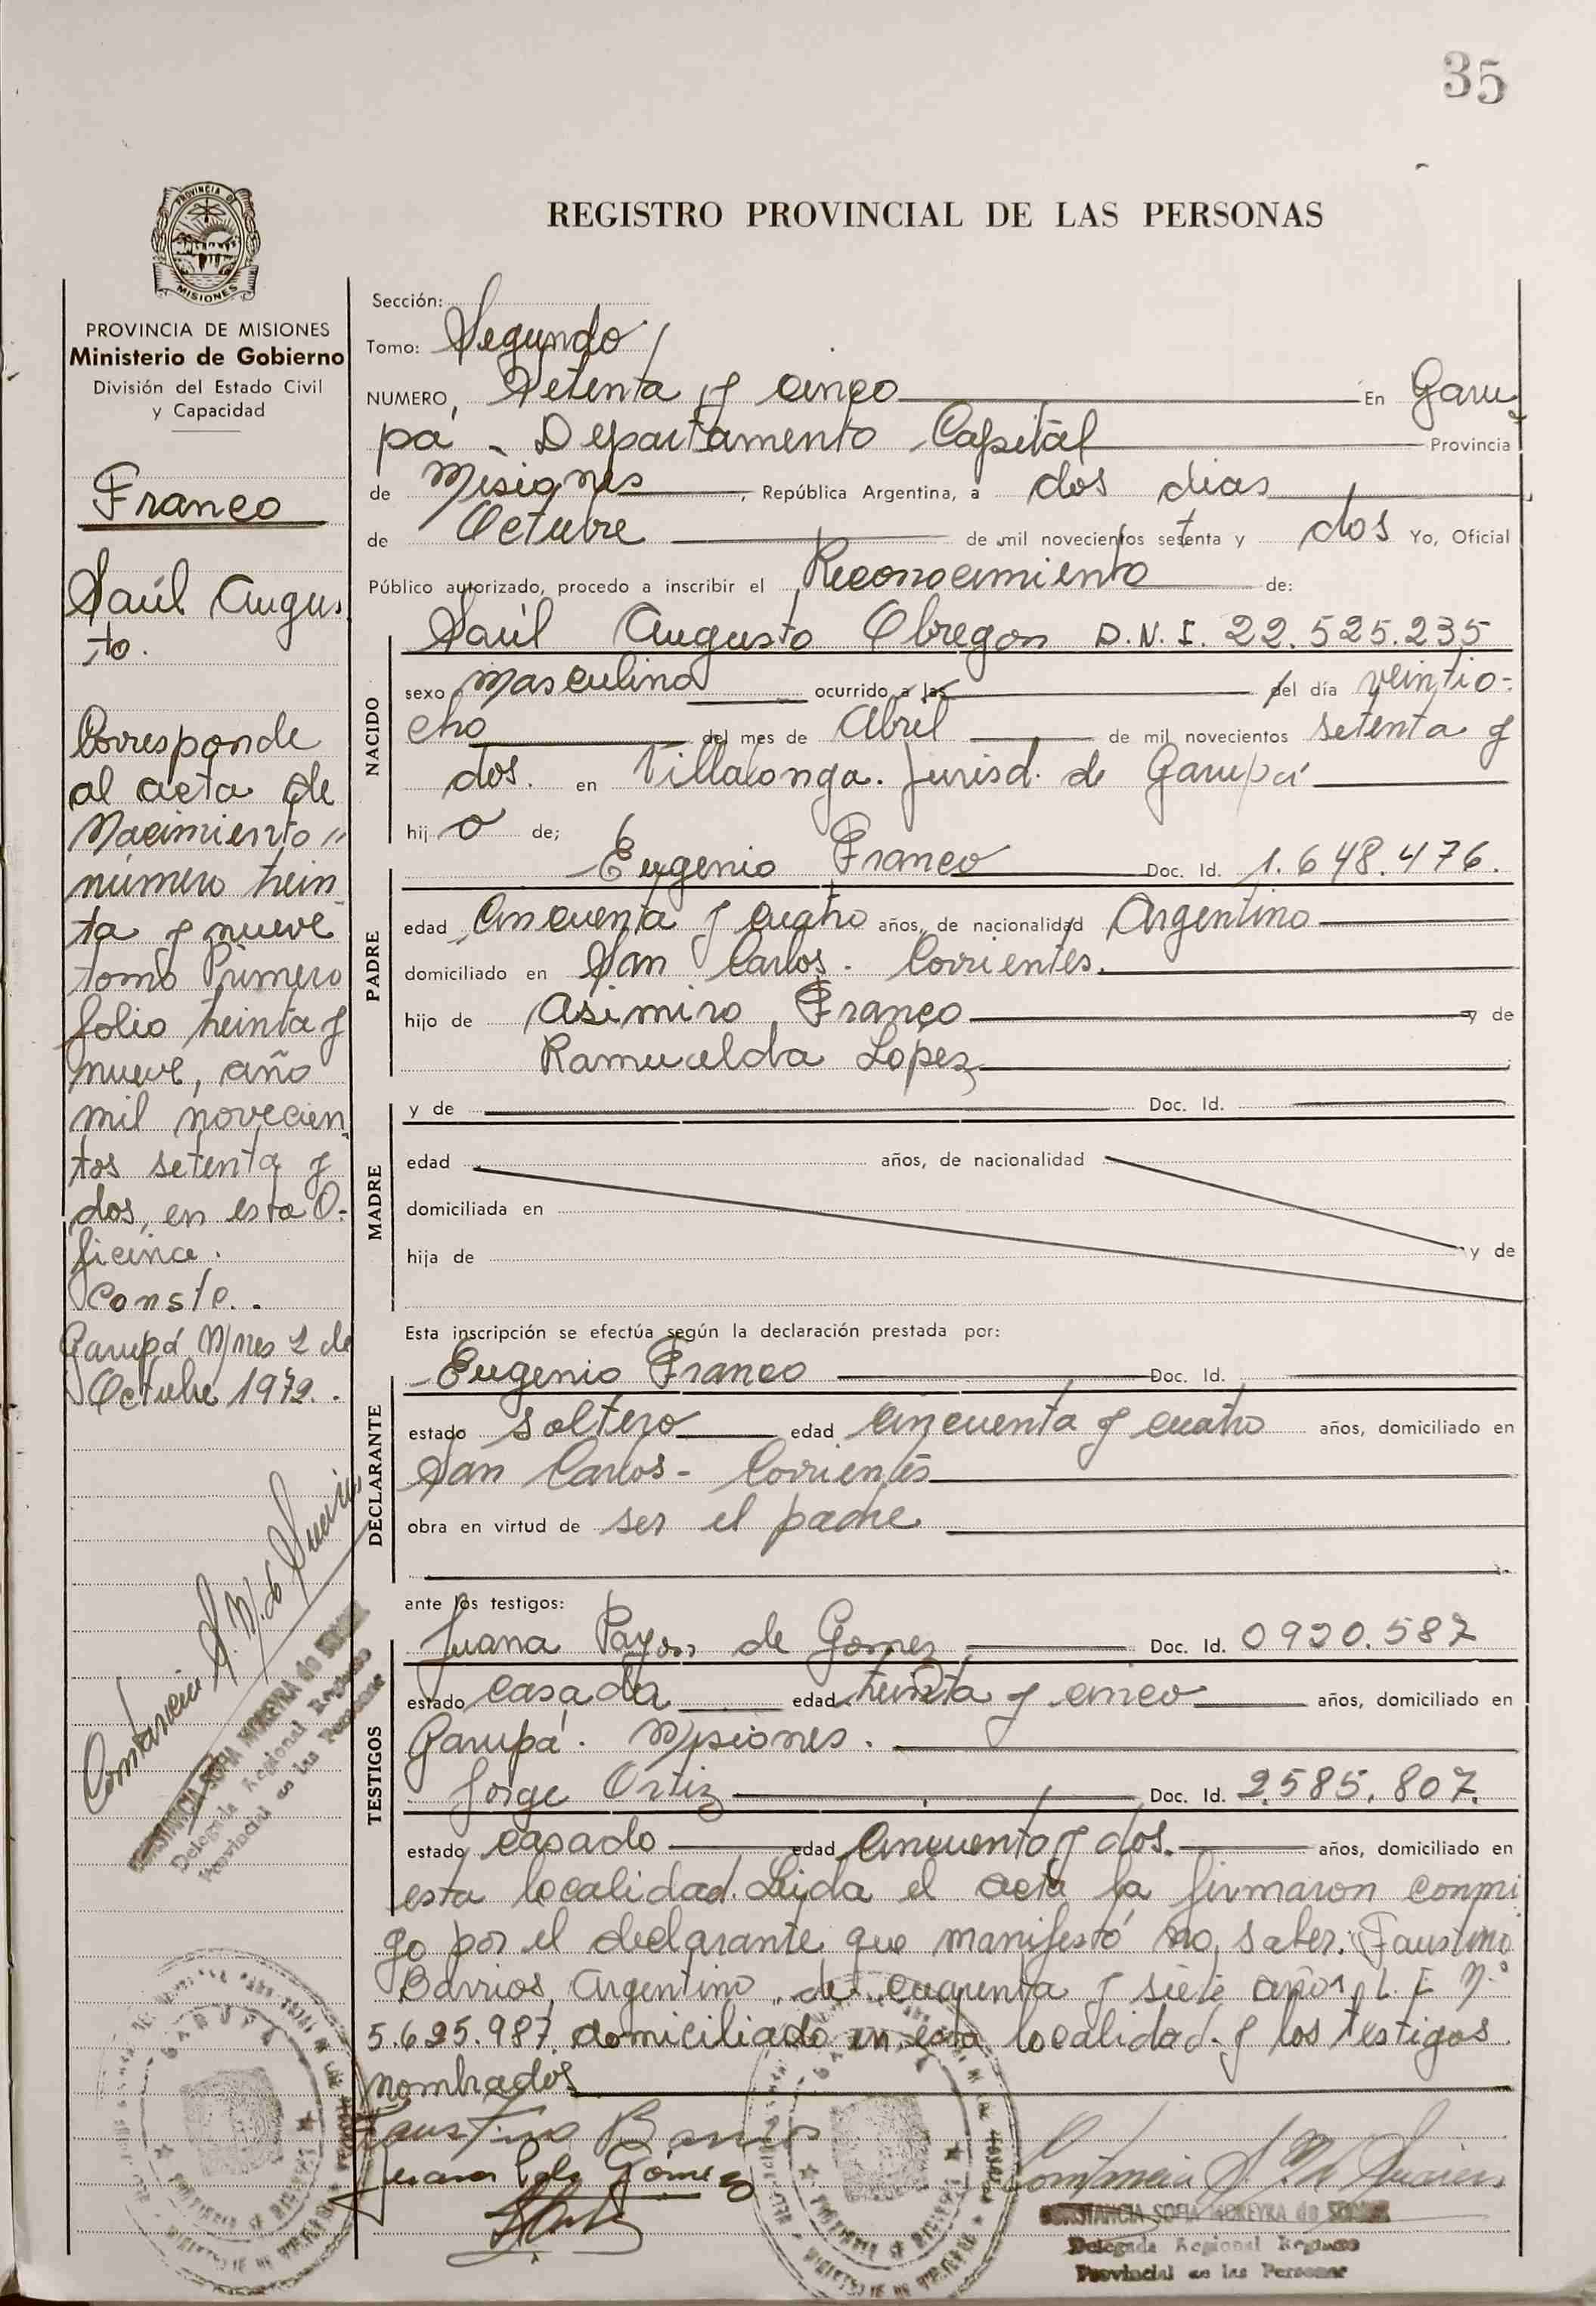 35
PROVINCIA DE
MISIONES
REGISTRO PROVINCIAL DE LAS PERSONAS
PROVINCIA DE MISIONES
Ministerio de Gobierno
División del Estado Civil
y Capacidad
Franco
Saúl Augus
to.
Corresponde
al acta de
Nacimiento "
número trein
ta y nueve
tomo Primero
folio treinta y
nueve, año
mil novecien
tos setenta y
dos, en esta O-
ficina.
Conste. -
Garupá Mnes 2 de
Octubre 1972. -
CONSTANCIA SOFIA MOREYRA de
Delegada Regional Registro
Provincial de las Personas
Sección:
Tomo: Segundo
NUMERO, Setenta y cinco En Garu
pá - Departamento Capital Provincia
de Misiones, República Argentina, a dos dias
de Octubre de mil novecientos setenta y dos Yo, Oficial
Público autorizado, procedo a inscribir el Reconocimiento de:
NACIDO
Saúl Augusto Obregon D.N.I. 22.525.235
sexo masculino ocurrido a las del día veintio-
cho del mes de Abril de mil novecientos setenta y
dos. en Villalonga. Jurisd. de Garupá
hijo de;
PADRE
Eugenio Franco Doc. Id. 1.648.476.
edad Cincuenta y cuatro años, de nacionalidad Argentino
domiciliado en San Carlos - Corrientes.
hijo de Asimiro Franco y de
Ramualda Lopez
MADRE
y de Doc. Id.
edad años, de nacionalidad
domiciliada en
hija de y de
Esta inscripción se efectúa según la declaración prestada por:
DECLARANTE
Eugenio Franco Doc. Id.
estado soltero edad cincuenta y cuatro años, domiciliado en
San Carlos - Corrientes
obra en virtud de ser el padre
ante los testigos:
TESTIGOS
Juana de Gomez Doc. Id. 0920.587
estado casada edad treinta y cinco años, domiciliado en
Garupá. Misiones.
Jorge Ortiz Doc. Id. 2.585.807.
estado casado edad cincuenta y dos. años, domiciliado en
esta localidad. Leida el acta la firmaron conmi
go por el declarante que manifestó no saber: Faustino
Barrios, Argentino, de cuarenta y siete años, L. E Nº
5.625.987, domiciliado en esta localidad y los testigos
nombrados
Faustino Barrios
Juana P de Gómez
CONSTANCIA SOFIA MOREYRA de
Delegada Regional Registro
Provincial de las Personas